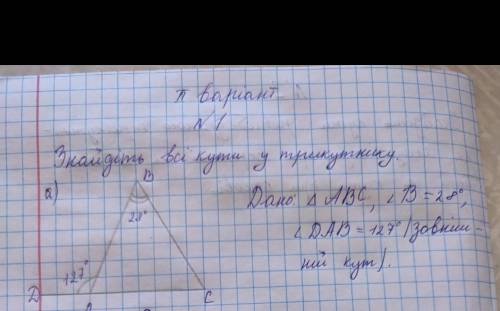 II варіант
№1
Знайдіть всі кути у трикутнику.
а)
B
28°
127°
D
A
C
Дано: △ ABC, ∠B = 28°,
∠DAB = 127° (зовніш-
ній кут).